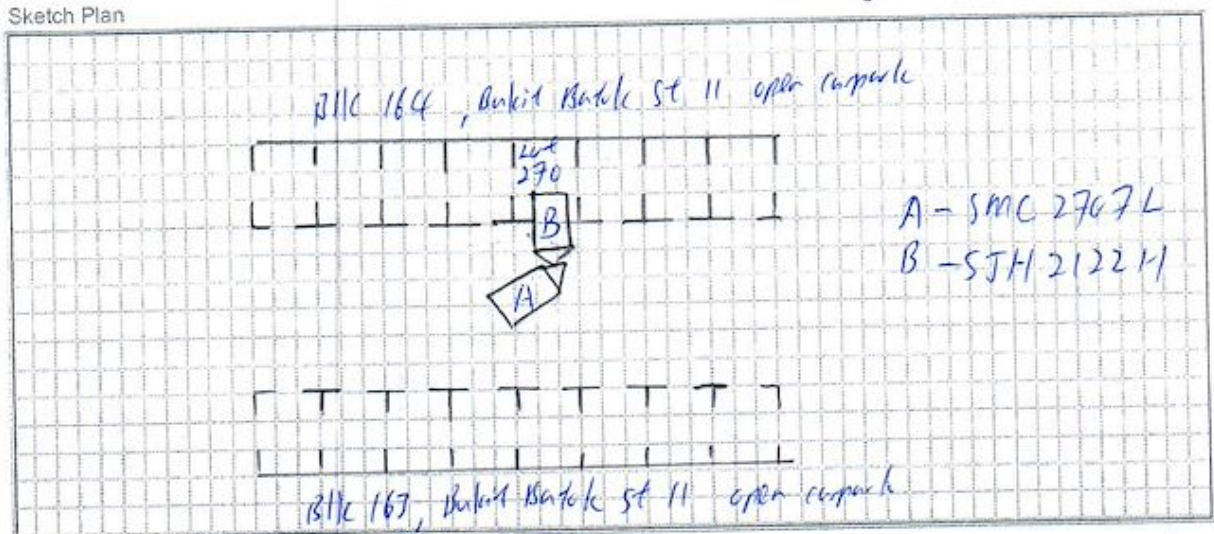 Sketch Plan
Blk 164, Bukit Batok St 11 open carpark
Lot
270
B
A
A - SMC 2767L
B - SJH 2122H
Blk 163, Bukit Batok St 11 open carpark